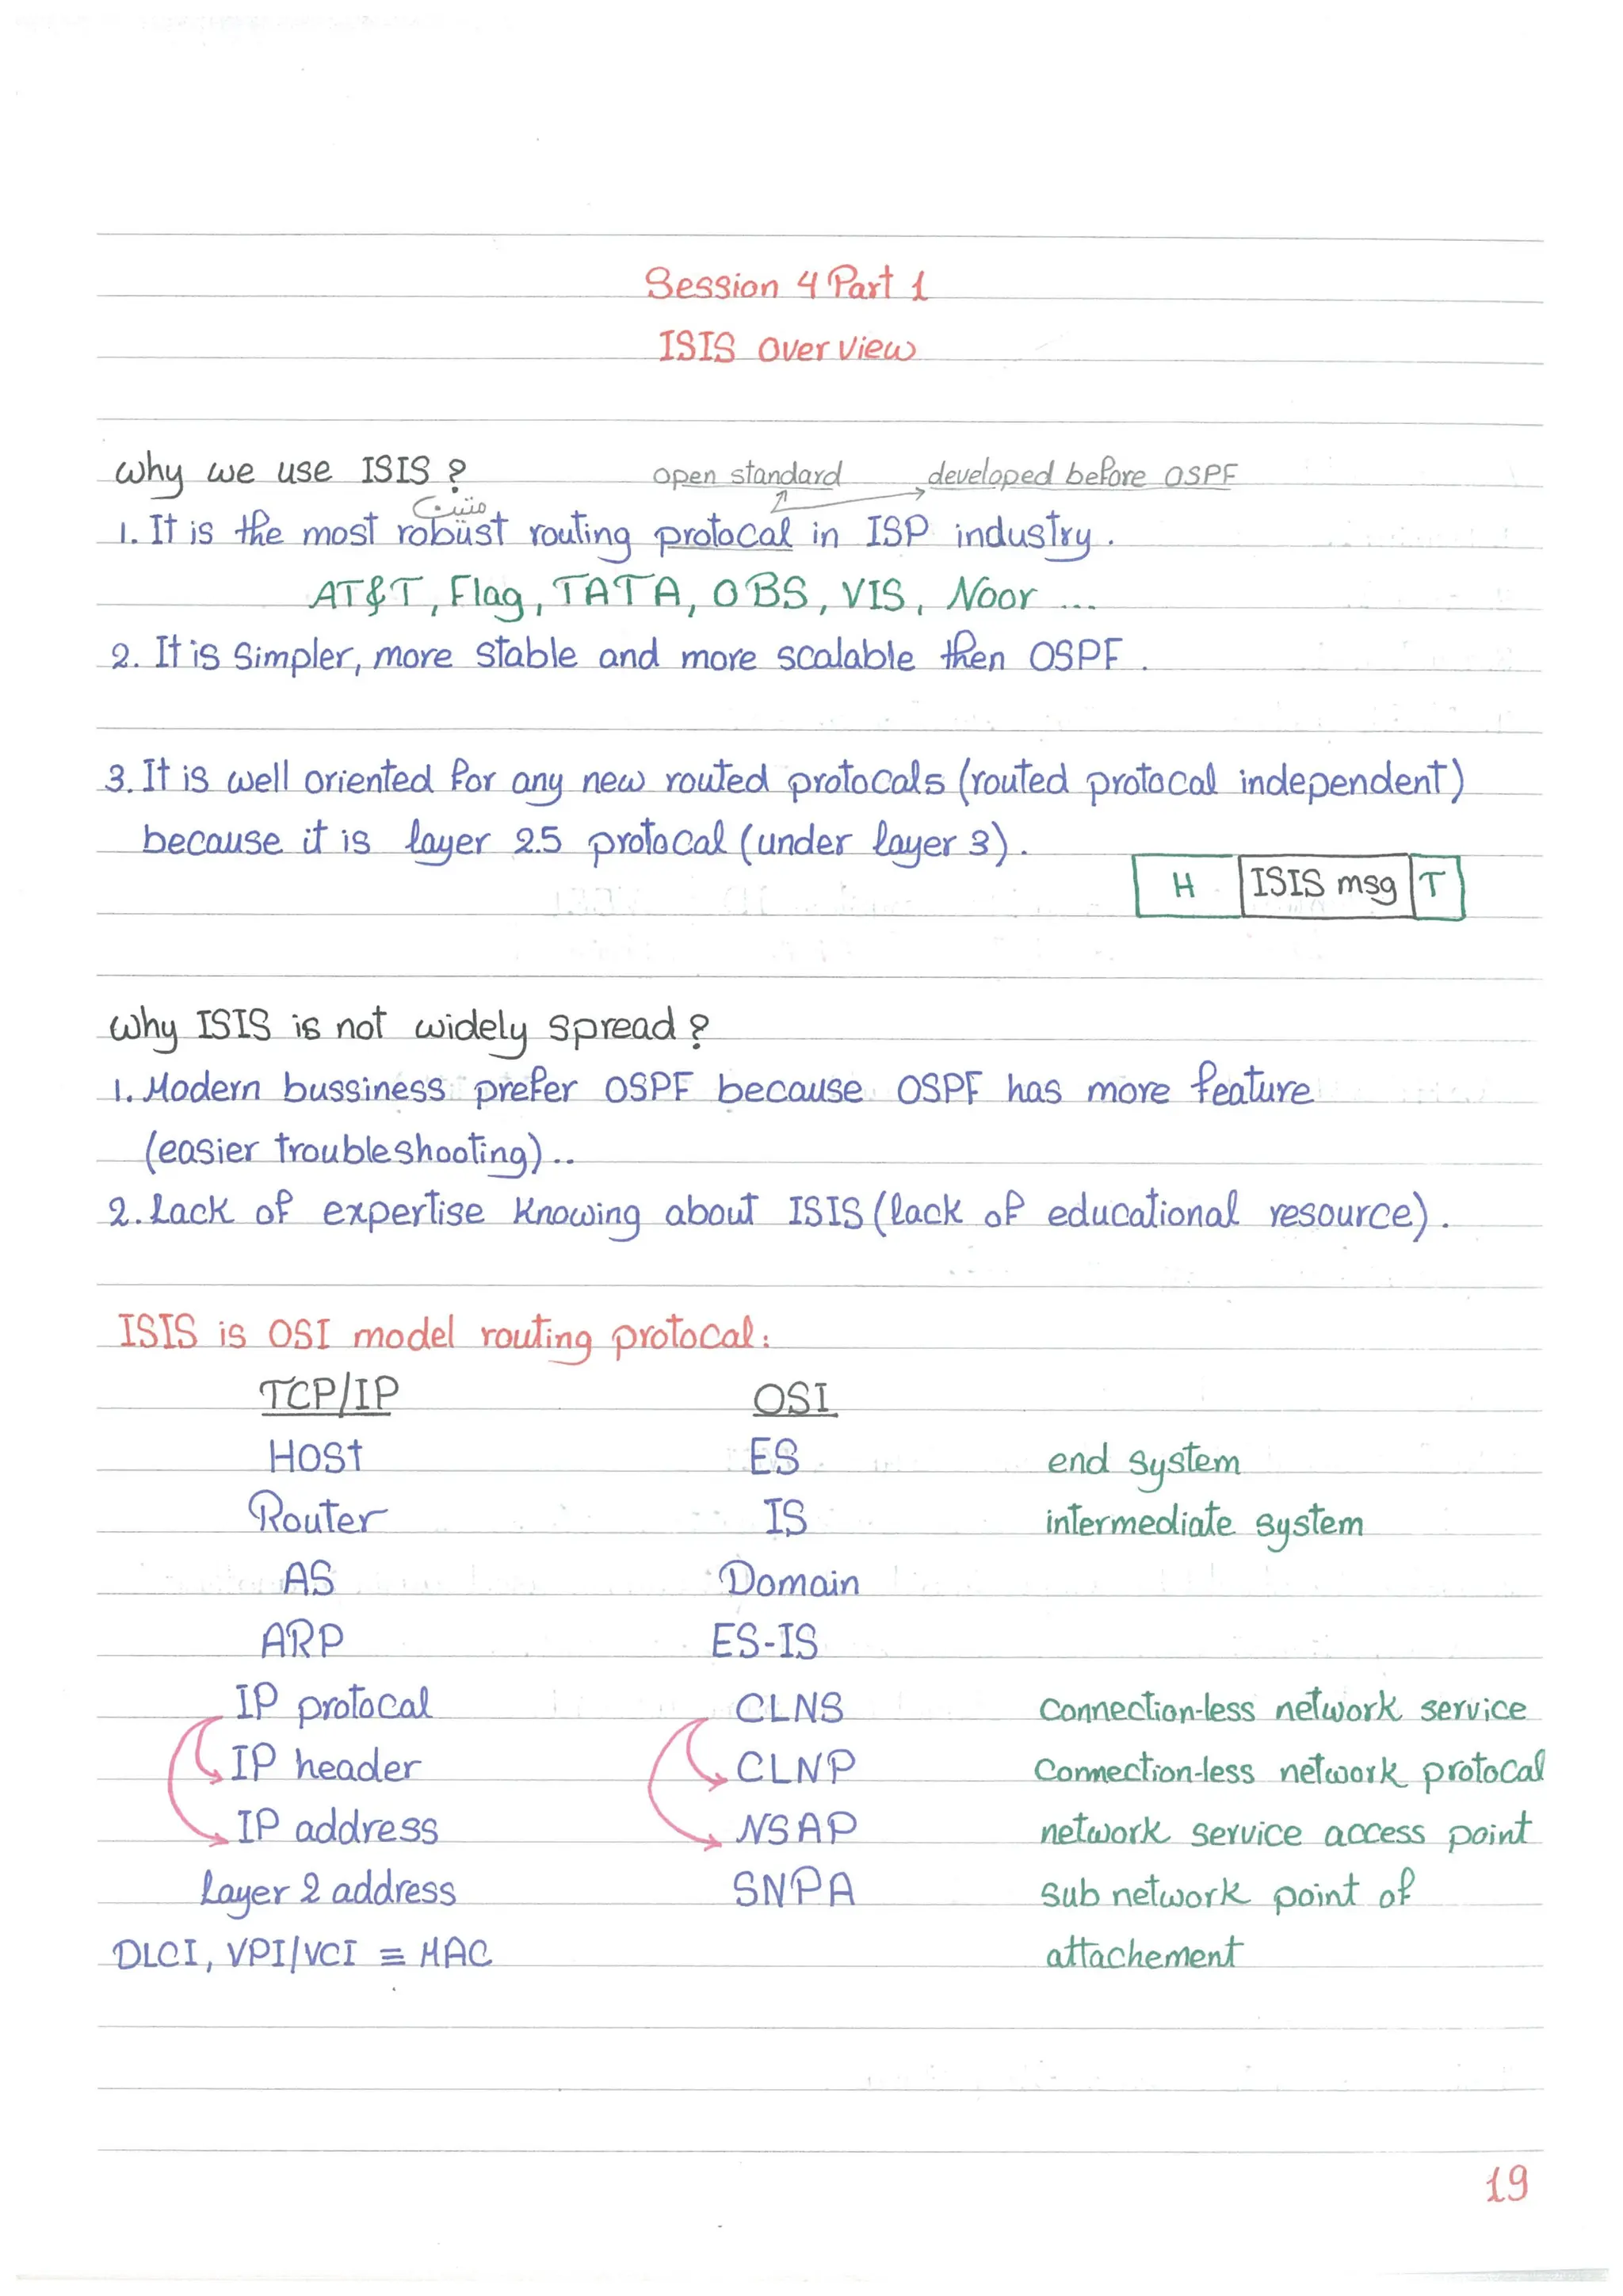 Session 4 Part 1
ISIS Over View
why we use ISIS ?
open standard developed before OSPF
متين
1. It is the most robust routing protocal in ISP industry.
AT&T, Flag, TATA, OBS, VIS, Noor ...
2. It is Simpler, more stable and more scalable then OSPF.
3. It is well oriented for any new routed protocals (routed protocal independent)
because it is layer 2.5 protocal (under layer 3).
H ISIS msg T
why ISIS is not widely spread ?
1. Modern bussiness prefer OSPF because OSPF has more feature
(easier troubleshooting) ..
2. Lack of expertise knowing about ISIS (lack of educational resource).
ISIS is OSI model routing protocal:
TCP/IP OSI
Host ES end system
Router IS intermediate system
AS Domain
ARP ES-IS
IP protocal CLNS Connection-less network service
IP header CLNP Connection-less network protocal
IP address NSAP network service access point
Layer 2 address SNPA sub network point of
DLCI, VPI/VCI ≡ MAC attachement
19